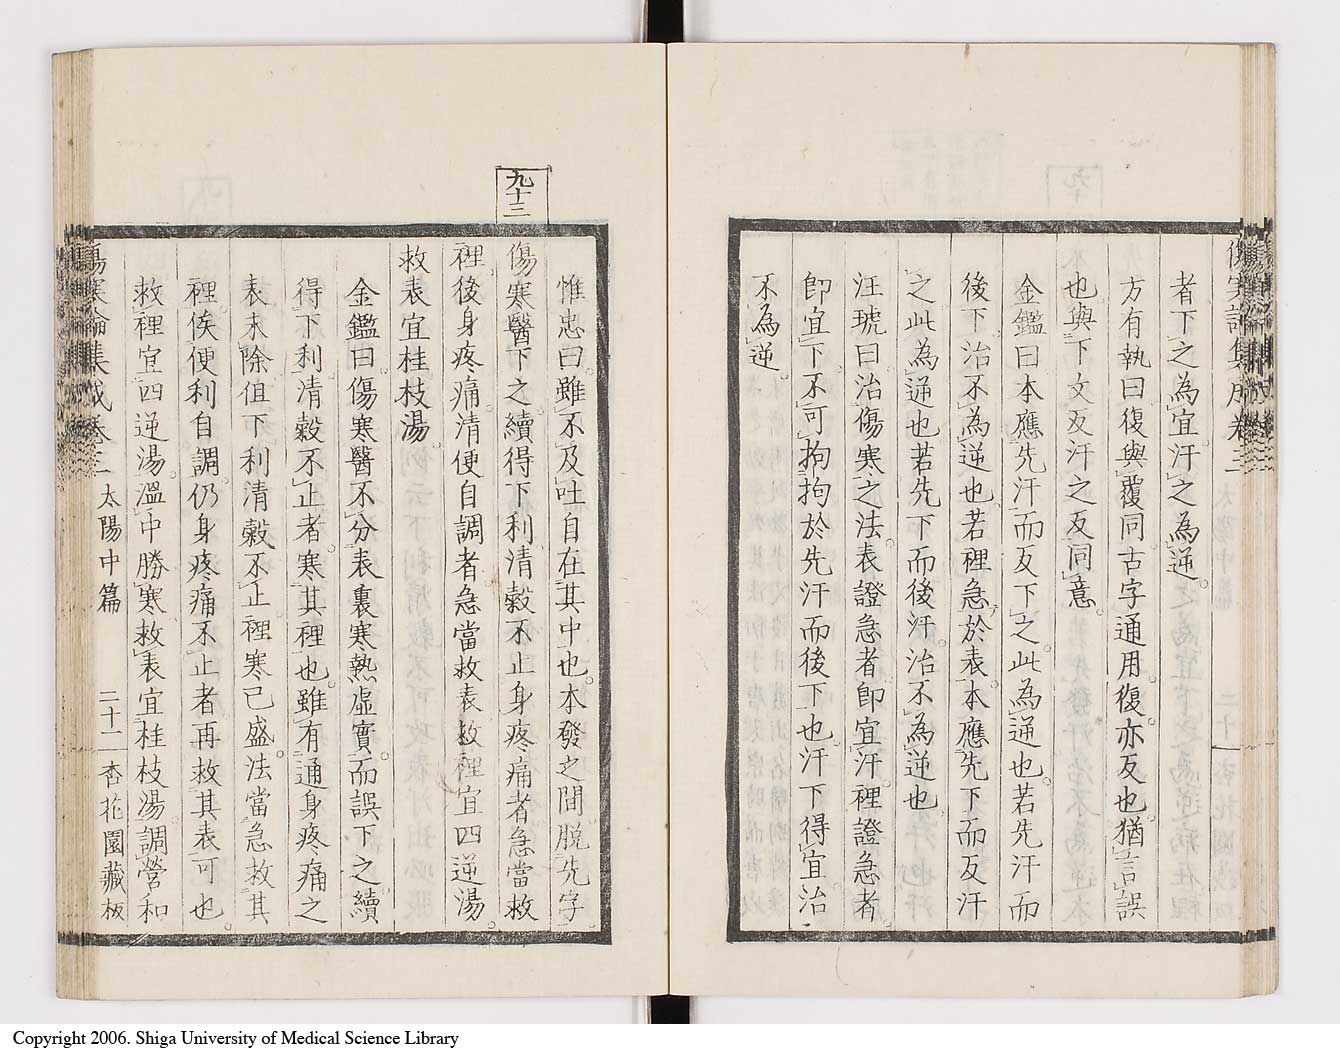 者下之為宜汗之為逆
方有執曰復與覆同古字通用復亦反也猶言誤
也與下文反汗之反同意
金鑑曰本應先汗而反下之此為逆也若先汗而
後下治不為逆也若裡急於表本應先下而反汗
之此為逆也若先下而後汗治不為逆也
汪琥曰治傷寒之法表證急者即宜汗裡證急者
即宜下不可拘拘於先汗而後下也汗下得宜治
不為逆
惟忠曰雖不及吐自在其中也本發之間脫先字
九十三
傷寒醫下之續得下利清穀不止身疼痛者急當救
裡後身疼痛清便自調者急當救表救裡宜四逆湯
救表宜桂枝湯
金鑑曰傷寒醫不分表裏寒熱虛實而誤下之續
得下利清穀不止者寒其裡也雖有通身疼痛之
表未除但下利清穀不止裡寒已盛法當急救其
裡俟便利自調仍身疼痛不止者再救其表可也
救裡宜四逆湯溫中勝寒救表宜桂枝湯調營和
傷寒論集成卷三 太陽中篇 二十二 杏花園藏板
Copyright 2006. Shiga University of Medical Science Library